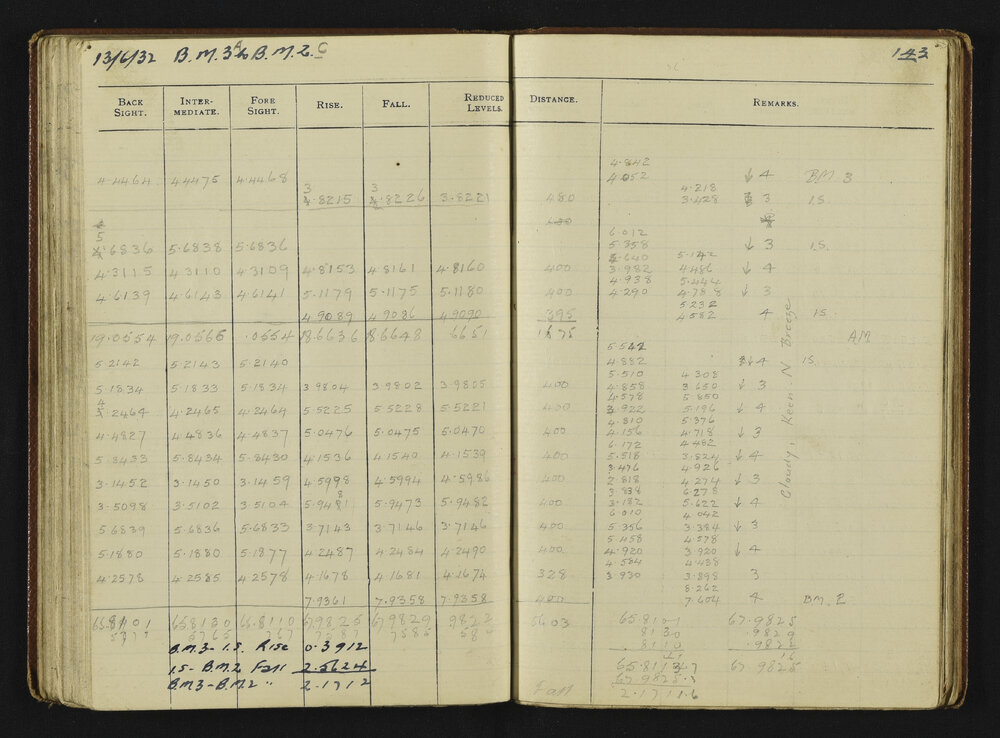 13/6/32 B.M.3A to B.M.2.C 143
BACK SIGHT. INTER-MEDIATE. FORE SIGHT. RISE. FALL. REDUCED LEVELS. DISTANCE. REMARKS.
4.842
4.4464 4.4475 4.4468 4.052 ↓ 4 B.M. 3
4.218
3.8215 3.8226 3.8221 480 3.428 3 I.S.
6.012
5.6836 5.6838 5.6836 5.358 ↓ 3 I.S.
4.640 5.142
4.3115 4.3110 4.3109 4.8153 4.8161 4.8160 400 3.982 4.486 ↓ 4
4.938 5.444
4.6139 4.6143 4.6141 5.1179 5.1175 5.1180 400 4.290 4.788 ↓ 3
5.232
4.9089 4.9086 4.9090 395 4.582 4 I.S.
19.0554 19.0566 .0554 18.6636 18.6648 6651 1675
5.542
5.2142 5.2143 5.2140 4.882 ↓ 4 I.S.
5.510 4.308
5.1834 5.1833 5.1834 3.9804 3.9802 3.9805 400 4.858 3.650 ↓ 3
4.578 5.850
4.2464 4.2465 4.2464 5.5225 5.5228 5.5221 400 3.922 5.196 ↓ 4
4.810 5.376
4.4827 4.4836 4.4837 5.0476 5.0475 5.0470 400 4.156 4.718 ↓ 3
6.172 4.482
5.8433 5.8434 5.8430 4.1536 4.1540 4.1539 400 5.518 3.824 ↓ 4
3.476 4.926
3.1452 3.1450 3.1459 4.5998 4.5994 4.5986 400 2.818 4.274 ↓ 3
3.838 6.278
3.5098 3.5102 3.5104 5.9481 5.9473 5.9482 400 3.182 5.622 ↓ 4
6.010 4.042
5.6839 5.6836 5.6833 3.7143 3.7146 3.7146 400 5.356 3.384 ↓ 3
5.458 4.578
5.1880 5.1880 5.1877 4.2487 4.2484 4.2490 400 4.920 3.920 ↓ 4
4.584 4.438
4.2578 4.2585 4.2578 4.1678 4.1681 4.1674 328 3.930 3.898 3
8.262
7.9361 7.9358 7.9358 480 7.604 4 B.M. 2
Cloudy, Keen N Breeze
65.8101 65.8130 65.8110 67.9825 67.9829 9822 5603 65.8101 67.9825
8130 .9829
B.M.3 - I.S. Rise 0.3912 .8110 .9822
I.S - B.M.2 Fall 2.5624 65.8113.7 67.9825
B.M.3 - B.M.2 " 2.1712 67.9825.3
Fall 2.1711.6